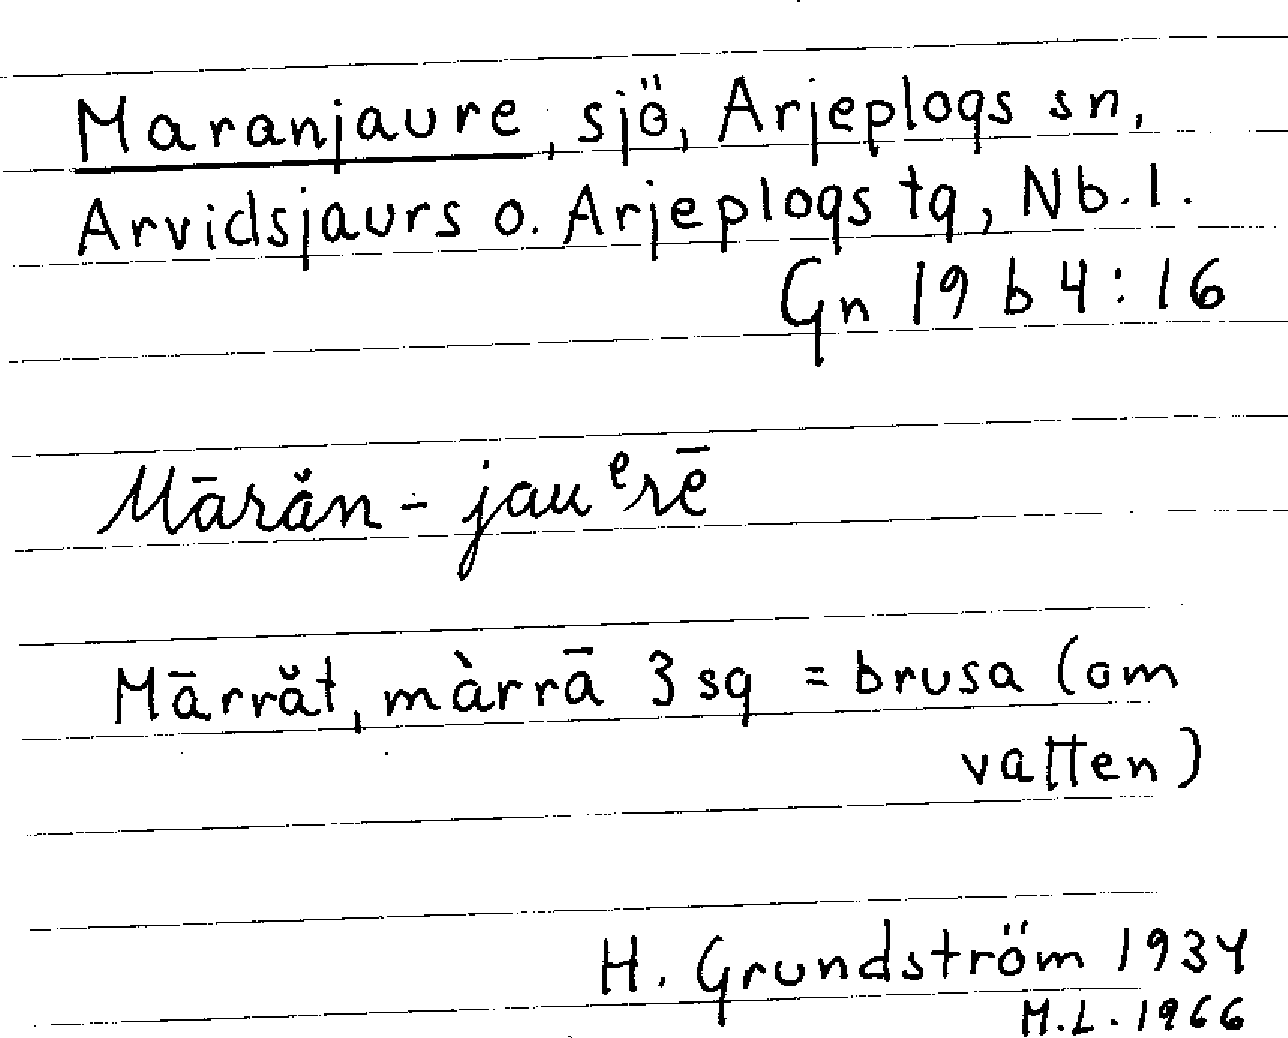 Maranjaure, sjö, Arjeplogs sn,
Arvidsjaurs o. Arjeplogs tg, Nb.l.
Gn 19 b 4:16
Mārăn-jauᵉrē
Mārrăt, màrrā 3 sg = brusa (om
vatten)
H. Grundström 1934
M.L. 1966